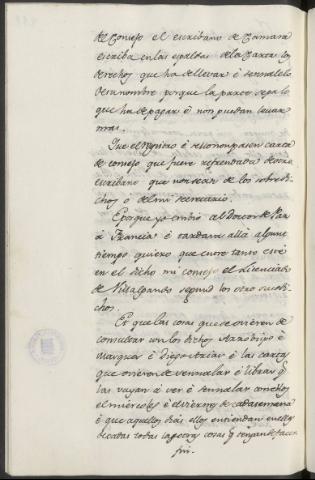 de Consejo el escribano de Camara
escriba en las espaldas de la Carta los
derechos que ha de llevar é sennalelo
de su nombre porque la parte sepa lo
que ha de pagar é non puedan levar
mas.
Que el registro é resson non pasen carta
de consejo que fuere refrendada de otro
escribano que non sea de los sobre di-
chos o de mi secretario.
E porque yo embio al Doctor de
á Francia é tardara allá algunt
tiempo quiero que entre tanto esté
en el dicho mi consejo el licenciado
de Villalpando segund los otro susodi-
chos.
Et que las cosas que se ovieren de
consultar con los dichos Arzobispo é
Marques é Diego Arias é las cartas
que ovieren de sennalar é librar q.
las vayan á ver é sennalar con ellos
el miercoles é el viernes de cada semana
é que aquellos dias ellos entiendan en ellas
é cada todas las otras cosas q. tengan de facer
fin.